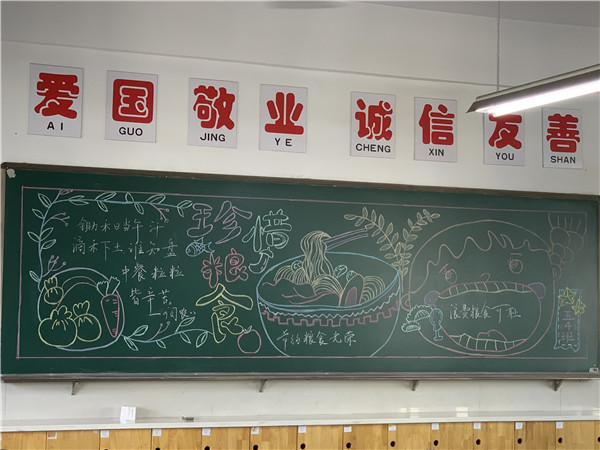 爱 国 敬 业 诚 信 友 善
AI GUO JING YE CHENG XIN YOU SHAN
锄禾日当午 汗
滴禾下土谁知盘
中餐粒粒
皆辛苦。
珍惜
粮
食
节约粮食光荣
浪费粮食可耻